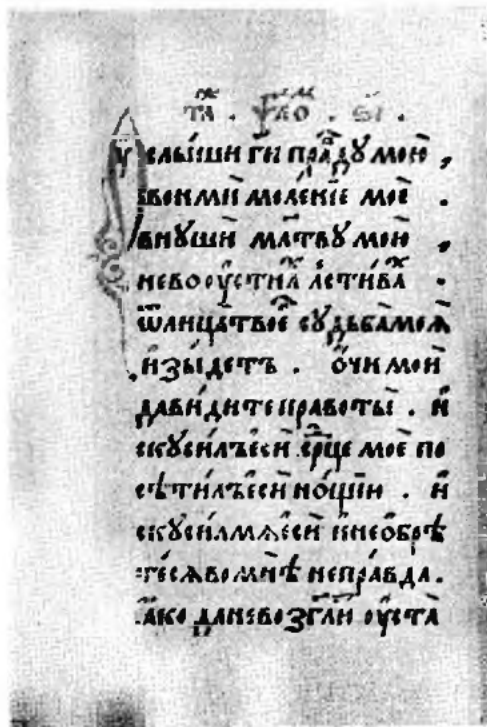 услы́ши гн҃и пра́вдꙋ мою̀ ,
вонмѝ моле́нїе моѐ .
внꙋшѝ мл҃твꙋ мою̀ ,
не во оу҆стна́ⷯ лстива́ⷯ .
ѿ лица̀ твоеⷢ҇ сꙋдьба̀ моѧ̀
и҆зы́детъ . ѻ҆́чи моѝ
да ви́дите правоты̀ . и҆
скꙋси́лъ є҆сѝ срⷣце моѐ по
сѣти́лъ є҆сѝ но́щїи . и҆
скꙋси́л мѧ є҆сѝ и҆ не ѻ҆брѣ́
те сѧ во мнѣ̀ непра́вда.
ꙗ҆́ко да не возгл҃и оу҆ста̀